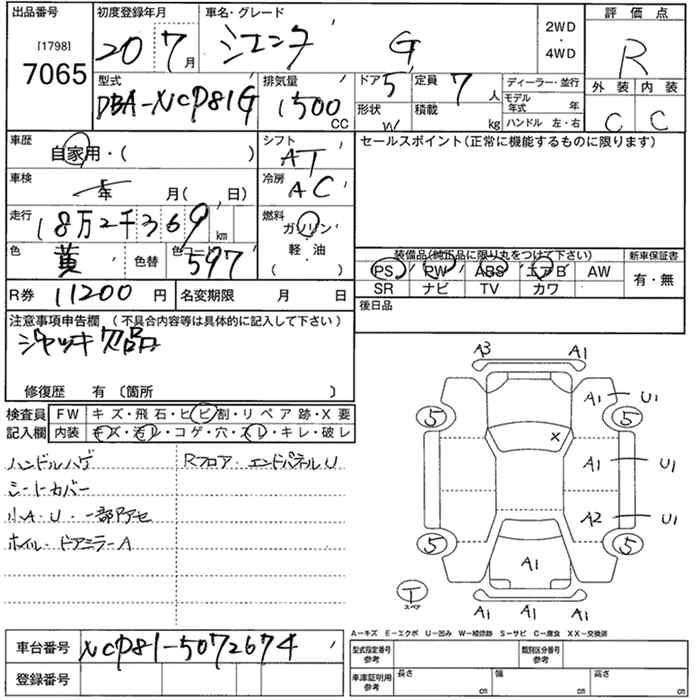 出品番号 初度登録年月 車名・グレード 2WD ・ 4WD 評価点
[1798]
7065 20 7月 シエンタ G R
型式 排気量 ドア 定員 ディーラー・並行 外装 内装
DBA-NCP81G 1500 CC 5 7 人 モデル年式 年 C C
形状 W 積載 kg ハンドル 左・右
車歴 自家用・( ) シフト AT セールスポイント(正常に機能するものに限ります)
車検 年 月( 日) 冷房 AC
走行 18万2千369 km 燃料 ガソリン・軽・油 ( ・ )
色 黄 色替 色コード 597
装備品(純正品に限り丸をつけて下さい) 新車保証書
PS PW ABS エアB AW 有・無
SR ナビ TV カワ
R券 11200 円 名変期限 月 日 後日品
注意事項申告欄 (不具合内容等は具体的に記入して下さい)
ジャッキ欠品
修復歴 有 〔箇所 〕
検査員 FW キズ・飛石・ヒビ割・リペア跡・X要
記入欄 内装 キズ・汚レ・コゲ・穴・スレ・キレ・破レ
ハンドルハゲ Rフロア・エンドパネルU
シートカバー
小A・U・一部アセ
ホイル・ドアミラーA
A3 A1
A1 U1
5 5
X
A1 U1
A2 U1
5 5
A1
T スペア
A1 A1 A1
A－キズ E－エクボ U－凹み W－補修跡 S－サビ C－腐食 XX－交換済
車台番号 NCP81-5072674
型式指定番号 参考 類別区分番号 参考
登録番号
車庫証明用 参考 長さ cm 幅 cm 高さ cm